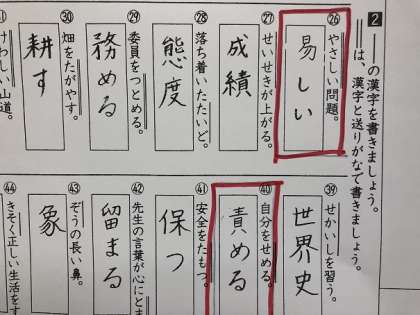 2 ――の漢字を書きましょう。
＝＝は、漢字と送りがなで書きましょう。
㉖ やさしい問題。
易しい
㉗ せいせきが上がる。
成績
㉘ 落ち着いたたいど。
態度
㉙ 委員をつとめる。
務める
㉚ 畑をたがやす。
耕す
けわしい山道。
㊴ せかいしを習う。
世界史
㊵ 自分をせめる。
責める
㊶ 安全をたもつ。
保つ
㊷ 先生の言葉が心にとま
留まる
㊸ ぞうの長い鼻。
象
㊹ きそく正しい生活をす